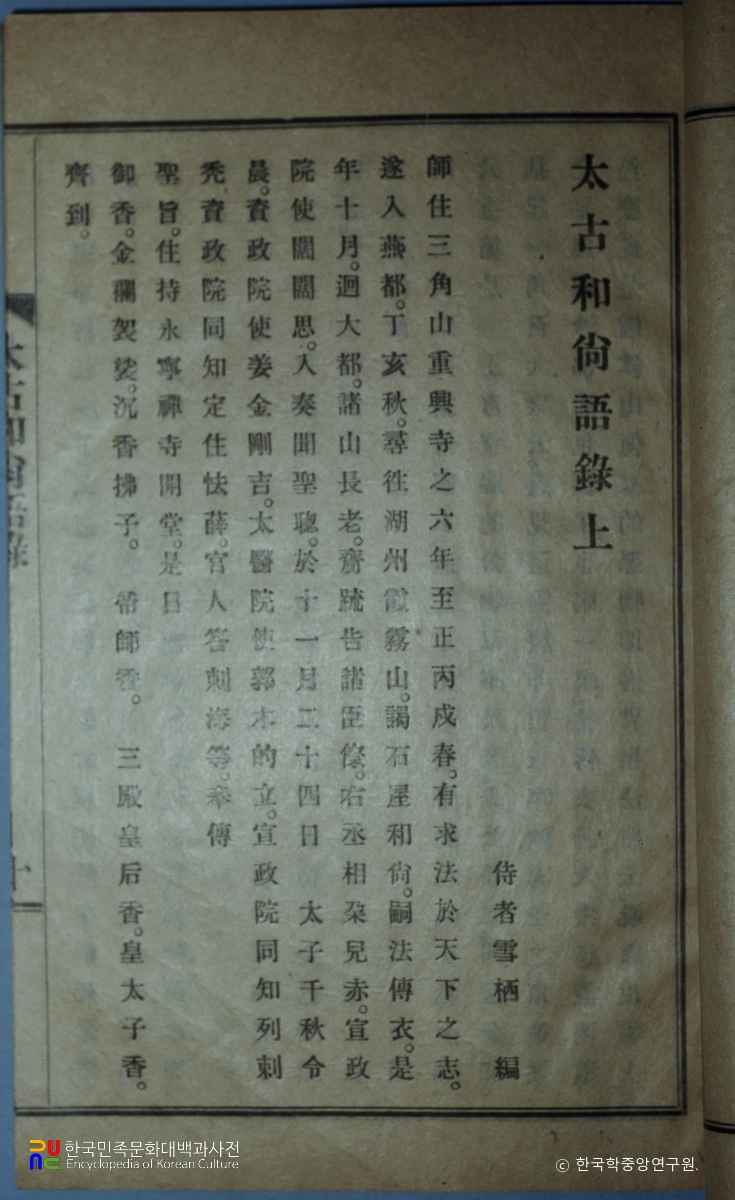 太古和尙語錄上
侍者雪栖 編
師住三角山重興寺之六年至正丙戍春。有求法於天下之志。
遂入燕都。丁亥秋。尋徃湖州霞霧山。謁石屋和尙。嗣法傳衣。是
年十月。迴大都。諸山長老。齎䟽告諸臣僚。右丞相朶兒赤。宣政
院使闊闊思。入奏聞聖聰。於十一月二十四日 太子千秋令
晨。資政院使姜金剛吉。太醫院使郭木的立。宣政院同知列剌
禿。資政院同知定住怯薛。官人答剌海等。奉傳
聖旨。住持永寧禪寺開堂。是日
御香。金襴袈裟。沉香拂子。 帝師香。 三殿皇后香。皇太子香。
齊到。
太古和尙語錄
十
한국민족문화대백과사전
Encyclopedia of Korean Culture
ⓒ 한국학중앙연구원.